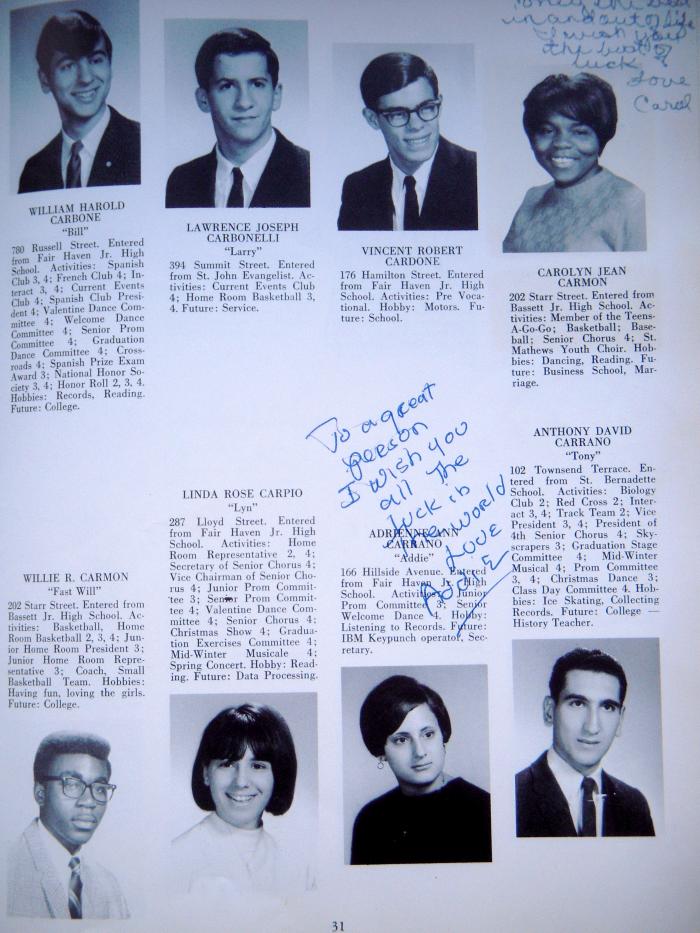 Only the best
in and out of life
I wish you
the best of
luck
Love
Carol
WILLIAM HAROLD
CARBONE
"Bill"
780 Russell Street. Entered
from Fair Haven Jr. High
School. Activities: Spanish
Club 3, 4; French Club 4; In-
teract 3, 4; Current Events
Club 4; Spanish Club Presi-
dent 4; Valentine Dance Com-
mittee 4; Welcome Dance
Committee 4; Senior Prom
Committee 4; Graduation
Dance Committee 4; Cross-
roads 4; Spanish Prize Exam
Award 3; National Honor So-
ciety 3, 4; Honor Roll 2, 3, 4.
Hobbies: Records, Reading.
Future: College.
LAWRENCE JOSEPH
CARBONELLI
"Larry"
394 Summit Street. Entered
from St. John Evangelist. Ac-
tivities: Current Events Club
4; Home Room Basketball 3,
4. Future: Service.
VINCENT ROBERT
CARDONE
176 Hamilton Street. Entered
from Fair Haven Jr. High
School. Activities: Pre Voca-
tional. Hobby: Motors. Fu-
ture: School.
CAROLYN JEAN
CARMON
202 Starr Street. Entered from
Bassett Jr. High School. Ac-
tivities: Member of the Teens-
A-Go-Go; Basketball; Base-
ball; Senior Chorus 4; St.
Mathews Youth Choir. Hob-
bies: Dancing, Reading. Fu-
ture: Business School, Mar-
riage.
To a great
person
I wish you
all the
luck in
the world
Love
WILLIE R. CARMON
"Fast Will"
202 Starr Street. Entered from
Bassett Jr. High School. Ac-
tivities: Basketball, Home
Room Basketball 2, 3, 4; Jun-
ior Home Room President 3;
Junior Home Room Repre-
sentative 3; Coach, Small
Basketball Team. Hobbies:
Having fun, loving the girls.
Future: College.
LINDA ROSE CARPIO
"Lyn"
287 Lloyd Street. Entered
from Fair Haven Jr. High
School. Activities: Home
Room Representative 2, 4;
Secretary of Senior Chorus 4;
Vice Chairman of Senior Cho-
rus 4; Junior Prom Commit-
tee 3; Senior Prom Commit-
tee 4; Valentine Dance Com-
mittee 4; Senior Chorus 4;
Christmas Show 4; Gradua-
tion Exercises Committee 4;
Mid-Winter Musicale 4;
Spring Concert. Hobby: Read-
ing. Future: Data Processing.
ADRIENNE ANN
CARRANO
"Addie"
166 Hillside Avenue. Entered
from Fair Haven Jr. High
School. Activities: Junior
Prom Committee 3; Senior
Welcome Dance 4. Hobby:
Listening to Records. Future:
IBM Keypunch operator, Sec-
retary.
ANTHONY DAVID
CARRANO
"Tony"
102 Townsend Terrace. En-
tered from St. Bernadette
School. Activities: Biology
Club 2; Red Cross 2; Inter-
act 3, 4; Track Team 2; Vice
President 3, 4; President of
4th Senior Chorus 4; Sky-
scrapers 3; Graduation Stage
Committee 4; Mid-Winter
Musical 4; Prom Committee
3, 4; Christmas Dance 3;
Class Day Committee 4. Hob-
bies: Ice Skating, Collecting
Records. Future: College —
History Teacher.
31